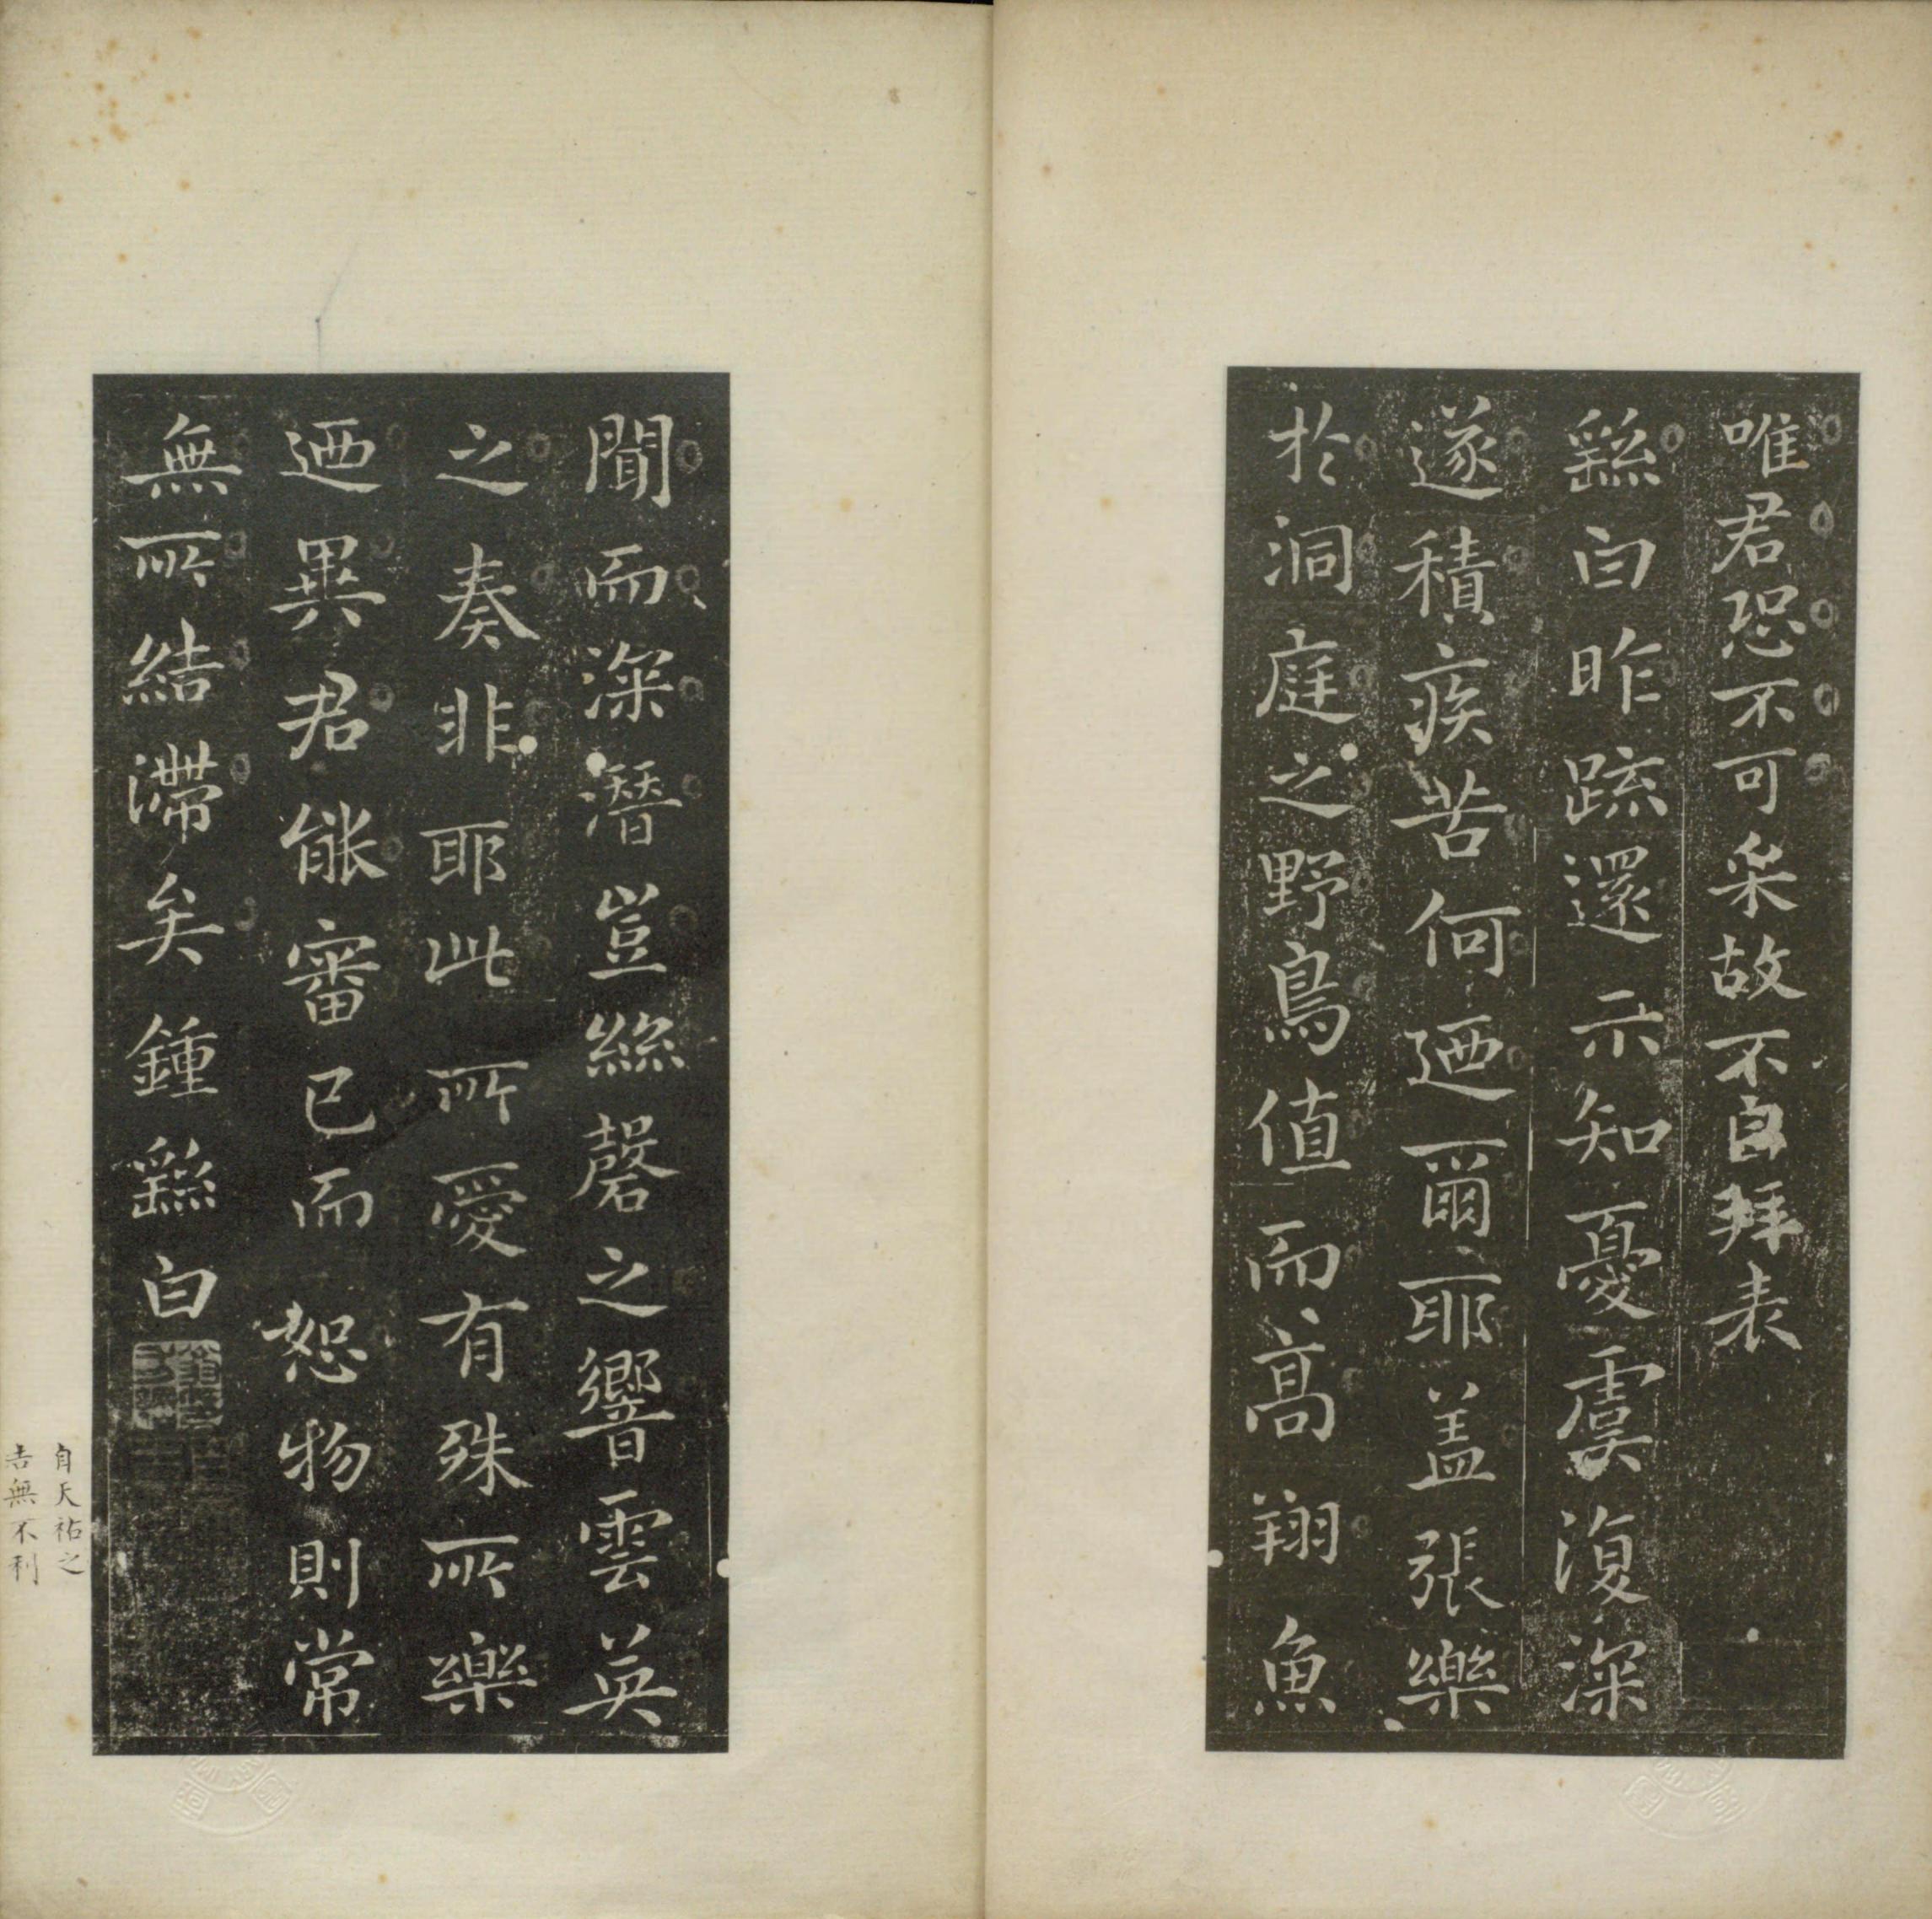 唯君恐不可采故不自拜表
繇白昨疏還示知憂虞復深
遂積疾苦何迺爾耶蓋張樂
於洞庭之野鳥值而高翔魚
聞而深潛豈絲磬之響雲英
之奏非耶此所愛有殊所樂
迺異君能審己而恕物則常
無所結滯矣鍾繇白
自天祐之
吉無不利